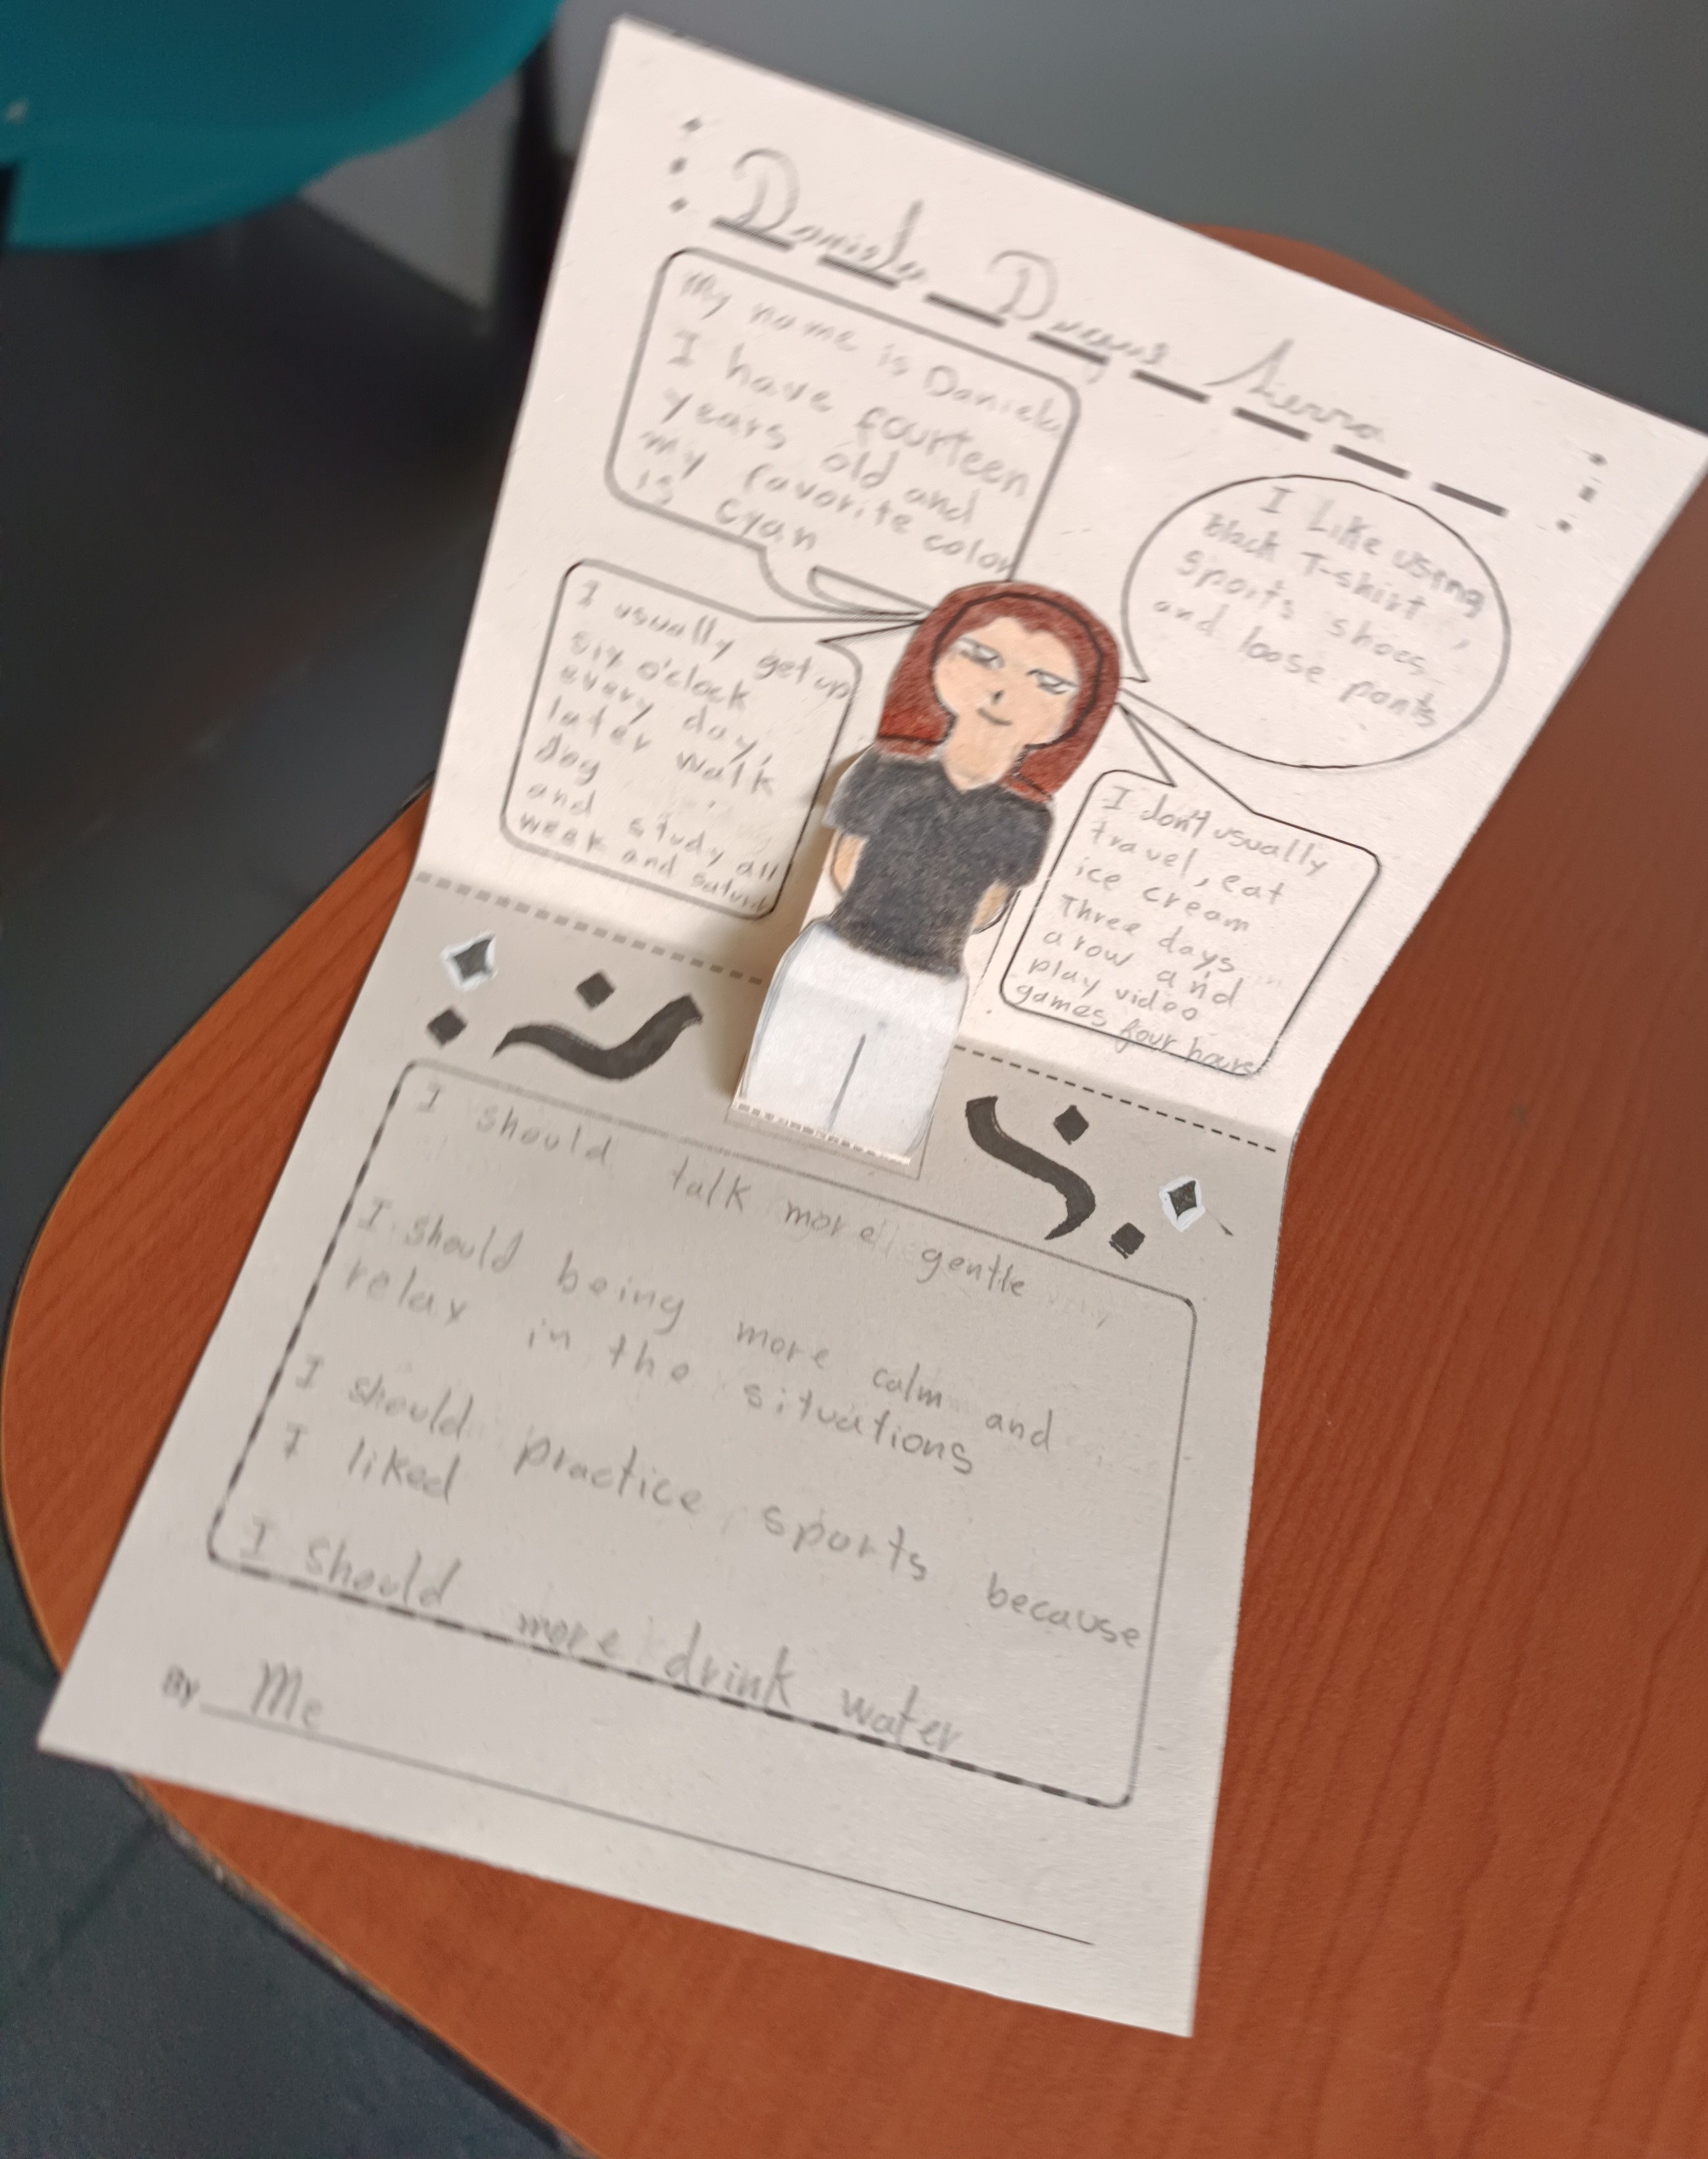 Daniela Sierra
My name is Daniela
I have fourteen
years old and
my favorite color
is cyan
I Like using
Black T-shirt,
sports shoes
and loose pants
I usually get up
six o'clock
every day,
later walk
dog
and study all
week and
I don't usually
travel, eat
ice cream
Three days
a row and
play video
games four hours
I should talk more gentle
I should being more calm and
relax in the situations
I should practice sports because
I liked
I should more drink water
By Me